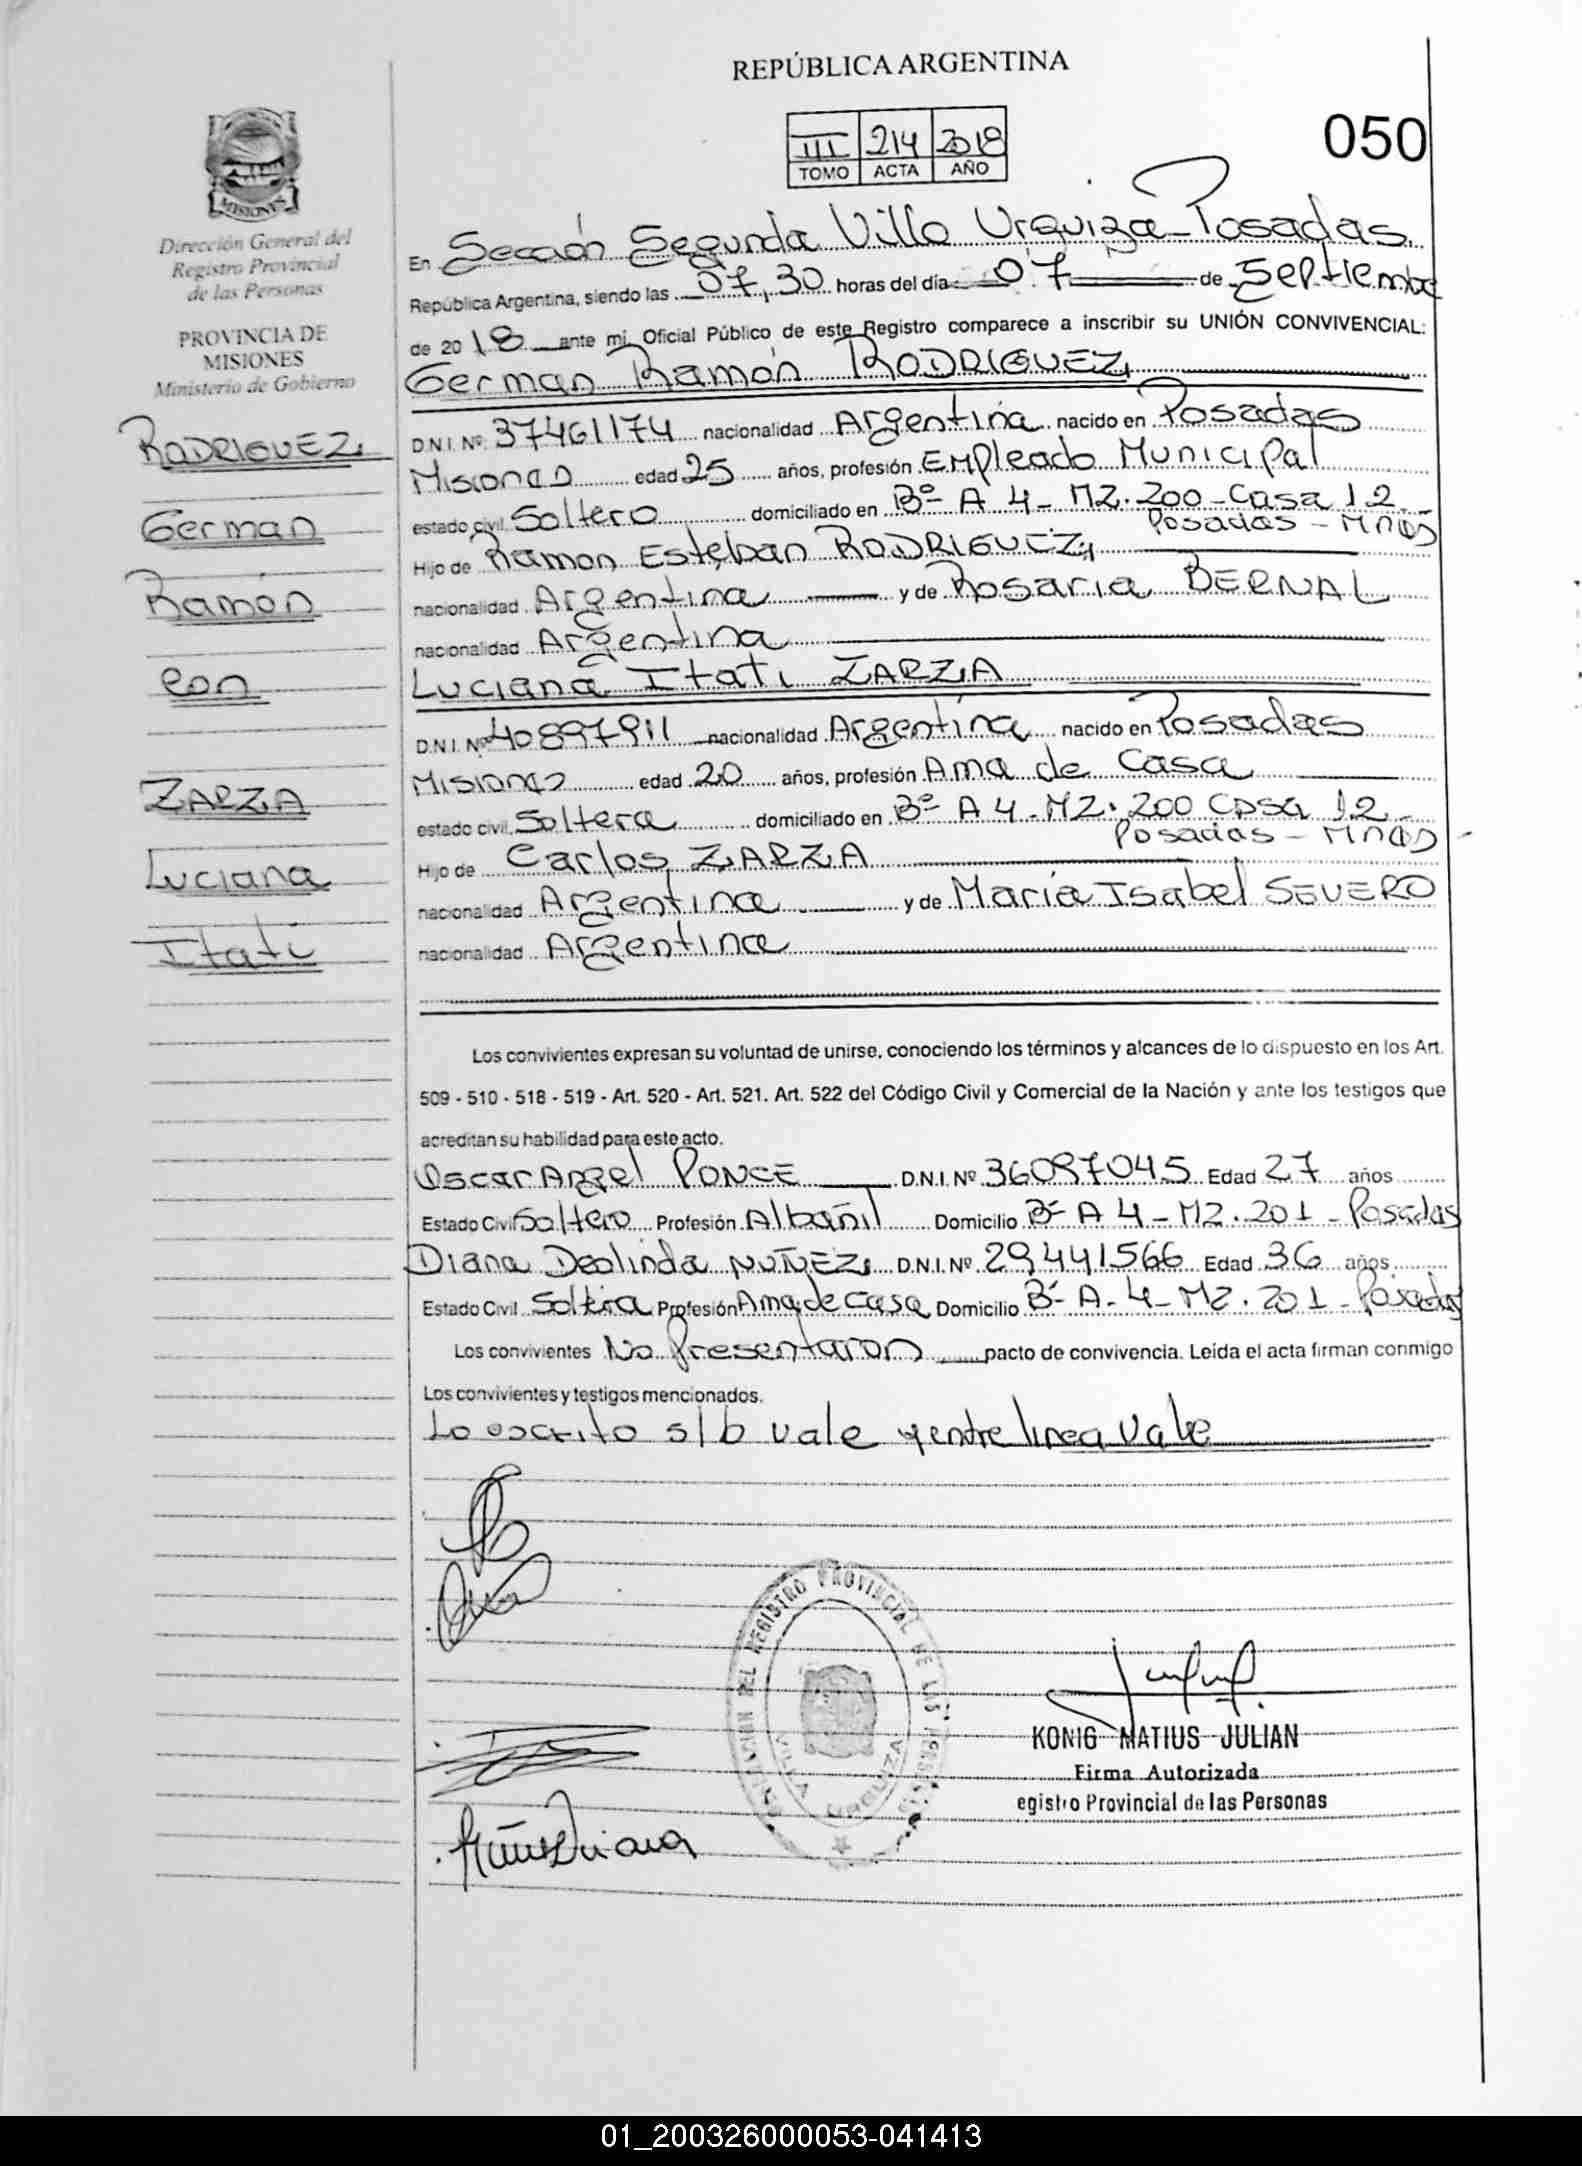 REPÚBLICA ARGENTINA
III 214 2018
TOMO ACTA AÑO
050
MISIONES
Dirección General del
Registro Provincial
de las Personas
PROVINCIA DE
MISIONES
Ministerio de Gobierno
RODRIGUEZ,
German
Ramón
con
ZARZA
Luciana
Itatí
En Sección Segunda Villa Urquiza - Posadas
República Argentina, siendo las 07,30 horas del día 07 de Septiembre
de 2018 ante mi, Oficial Público de este Registro comparece a inscribir su UNIÓN CONVIVENCIAL:
German Ramón RODRIGUEZ,
D.N.I. Nº 37461174 nacionalidad Argentina nacido en Posadas
Misiones edad 25 años, profesión Empleado Municipal
estado civil Soltero domiciliado en Bº A 4 - MZ. 200 - Casa 12 -
Posadas - Mnes
Hijo de Ramon Esteban RODRIGUEZ,
nacionalidad Argentina y de Rosaria BERNAL
nacionalidad Argentina
Luciana Itatí ZARZA
D.N.I. Nº 40897911 nacionalidad Argentina nacido en Posadas
Misiones edad 20 años, profesión Ama de Casa
estado civil Soltera domiciliado en Bº A 4 - MZ. 200 Casa 12 -
Posadas - Mnes
Hijo de Carlos ZARZA
nacionalidad Argentina y de María Isabel SEVERO
nacionalidad Argentina
Los convivientes expresan su voluntad de unirse, conociendo los términos y alcances de lo dispuesto en los Art.
509 - 510 - 518 - 519 - Art. 520 - Art. 521. Art. 522 del Código Civil y Comercial de la Nación y ante los testigos que
acreditan su habilidad para este acto.
Oscar Angel PONCE D.N.I. Nº 36097045 Edad 27 años
Estado Civil Soltero Profesión Albañil Domicilio Bº A 4 - MZ. 201 - Posadas
Diana Deolinda NUÑEZ, D.N.I. Nº 29441566 Edad 36 años
Estado Civil Soltera Profesión Ama de casa Domicilio Bº A - 4 - MZ. 201 - Posadas
Los convivientes No Presentaron pacto de convivencia. Leída el acta firman conmigo
Los convivientes y testigos mencionados.
Lo escrito s/b vale y entre linea Vale
REGISTRO PROVINCIAL DE LAS
VILLA URQUIZA
KONIG MATIUS JULIAN
Firma Autorizada
egistro Provincial de las Personas
Nuñez Diana
01_200326000053-041413